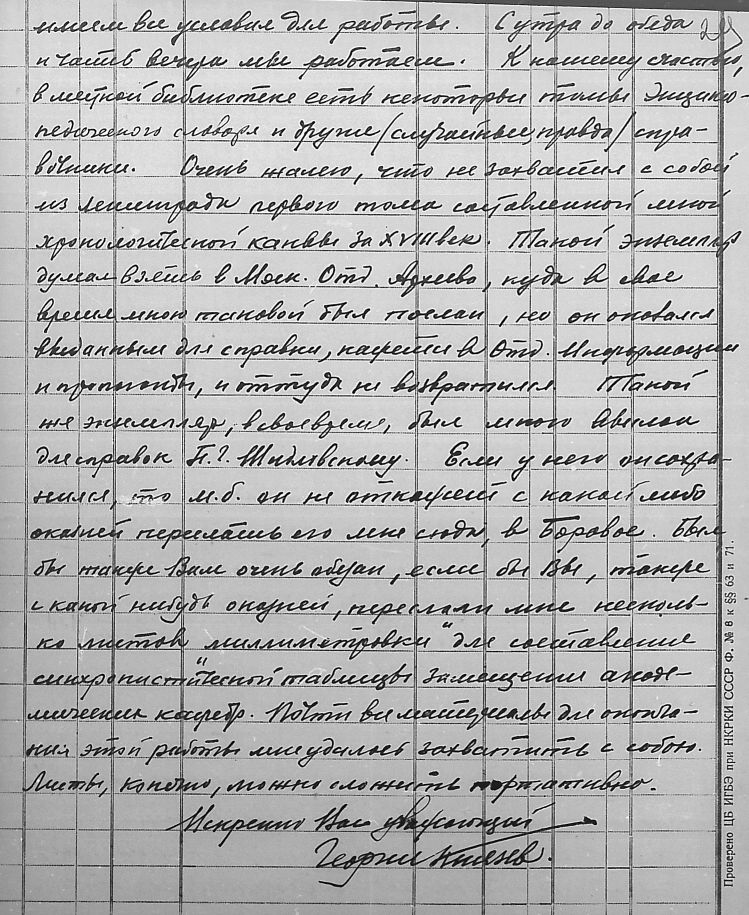 имеем все условия для работы. С утра до обеда
и часть вечера мы работаем. К нашему счастью,
в местной библиотеке есть некоторые томы Энцикло-
педического словаря и другие (случайные, правда) спра-
вочники. Очень жалею, что не захватил с собой
из Ленинграда первого тома составленной мной
хронологической канвы за XVIII век. Такой экземпляр
думал взять в Моск. Отд. Архива, куда в свое
время мною таковой был послан, но он оказался
выданным для справки, кажется в Отд. Информации
и пропаганды, и оттуда не возвратился. Такой
же экземпляр, в свое время, был мною
для справок П.Г. Если у него он сохра-
нился, то м.б. он не откажет с какой либо
оказией переслать его мне сюда, в Боровое. Был
бы также Вам очень обязан, если бы Вы, также
с какой нибудь оказией, переслали мне несколь-
ко листов "миллиметровки" для составления
синхронистической таблицы замещения акаде-
мических кафедр. Почти все материалы для оконча-
ния этой работы мне удалось захватить с собою.
Листы, конечно, можно сложить портативно.
Искренно Вас уважающий
Георгий Князев.
Проверено ЦБ ИГБЭ при НКРКИ СССР Ф. № 8 к §§ 63 и 71.